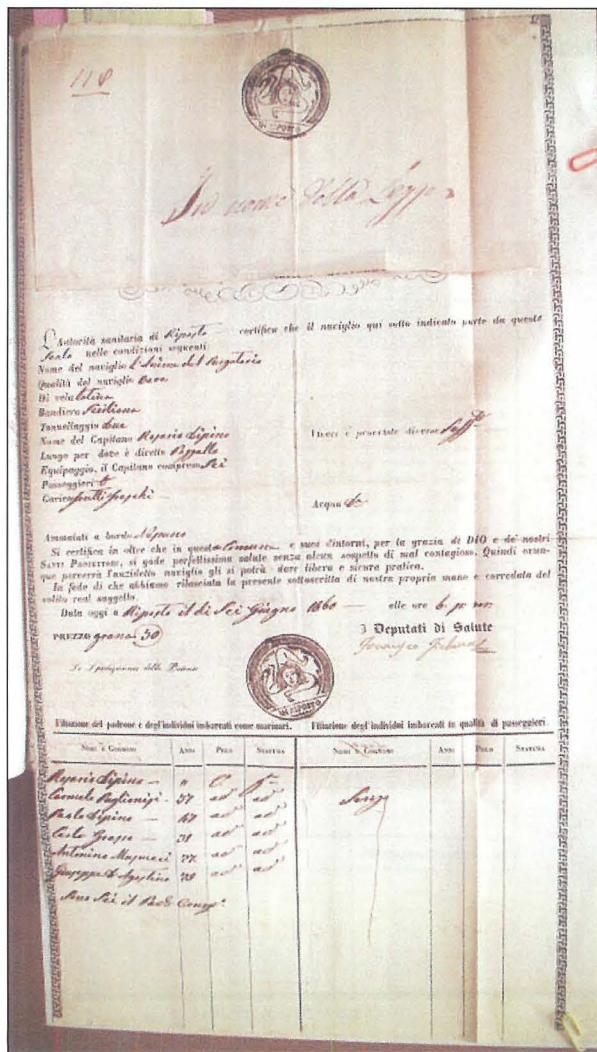 118
DI RIPOSTO
In nome della Legge
L'Autorità sanitaria di Riposto certifica che il naviglio qui sotto indicato parte da questo
Scalo nelle condizioni seguenti
Nome del naviglio L'Anime del Purgatorio
Qualità del naviglio Barca
Di vela latina
Bandiera Siciliana
Tonnellaggio due
Nome del Capitano Rosario Lipino
Viveri e provviste diverse
Luogo per dove è diretto
Equipaggio, il Capitano compreso Sei
Passeggieri
Carico frutti freschi
Acqua
Ammalati a bordo Nessuno
Si certifica in oltre che in questa Comune e suoi dintorni, per la grazia di DIO e de' nostri
SANTI PROTETTORI, si gode perfettissima salute senza alcun sospetto di mal contagioso. Quindi ovun-
que perverrà l'anzidetto naviglio gli si potrà dare libera e sicura pratica.
In fede di che abbiamo rilasciata la presente sottoscritta di nostra propria mano e corredata del
solito real suggello.
Data oggi a Riposto il dì Sei Giugno 1860 alle ore 6. p. m.
PREZZO grana 30
I Deputati di Salute
Francesco
DI RIPOSTO
Filiazione del padrone e degl'individui imbarcati come marinari. Filiazione degl'individui imbarcati in qualità di passeggieri.
NOMI E COGNOMI ANNI PELO STATURA NOMI E COGNOMI ANNI PELO STATURA
Rosario Lipino
Carmelo 37 ad ad
Paolo Lipino 47 ad ad
Carlo Grasso 38 ad ad
Antonino 27 ad ad
Giuseppe D'Agostino 28 ad ad
Sono Sei il